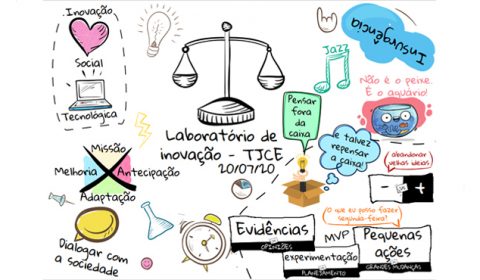 .Inovação
Social
Tecnológica
Missão
Melhoria
Antecipação
Adaptação
Dialogar com
a sociedade
Laboratório de
inovação - TJCE
20/07/20
Pensar
fora
da
caixa
Jazz
Insurgência
Não é o peixe.
É o aquário!
e talvez
repensar
a caixa!
abandonar
velhas ideias
- +
O que eu posso fazer
segunda-feira?
Evidências
OPINIÕES
MVP
experimentação
PLANEJAMENTO
Pequenas
ações
GRANDES MUDANÇAS